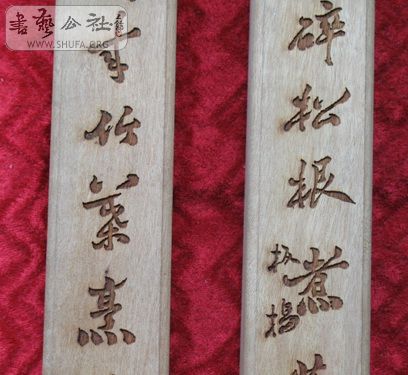 書藝公社
WWW.SHUFA.ORG
碎松根煮
板橋
来竹葉烹